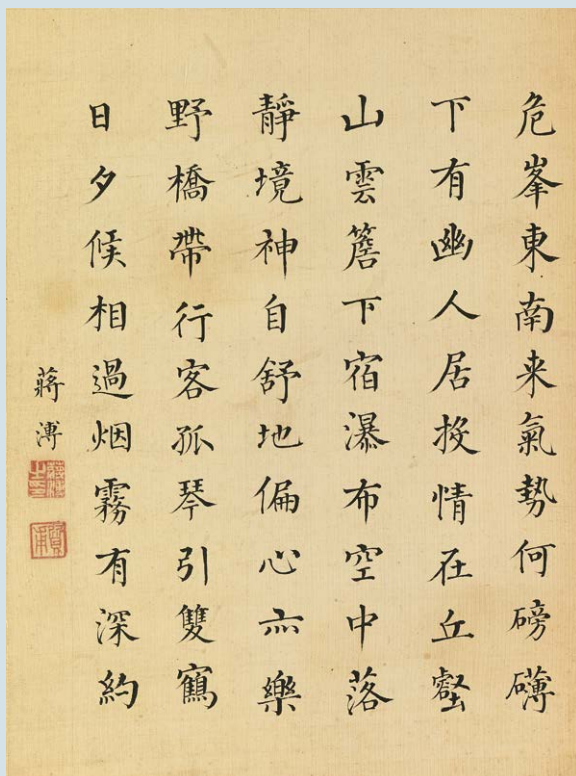 危峯東南来氣勢何磅礴
下有幽人居投情在丘壑
山雲簷下宿瀑布空中落
靜境神自舒地偏心亦樂
野橋帶行客孤琴引雙鶴
日夕候相過烟霧有深約
蔣溥
蔣溥之印
質甫